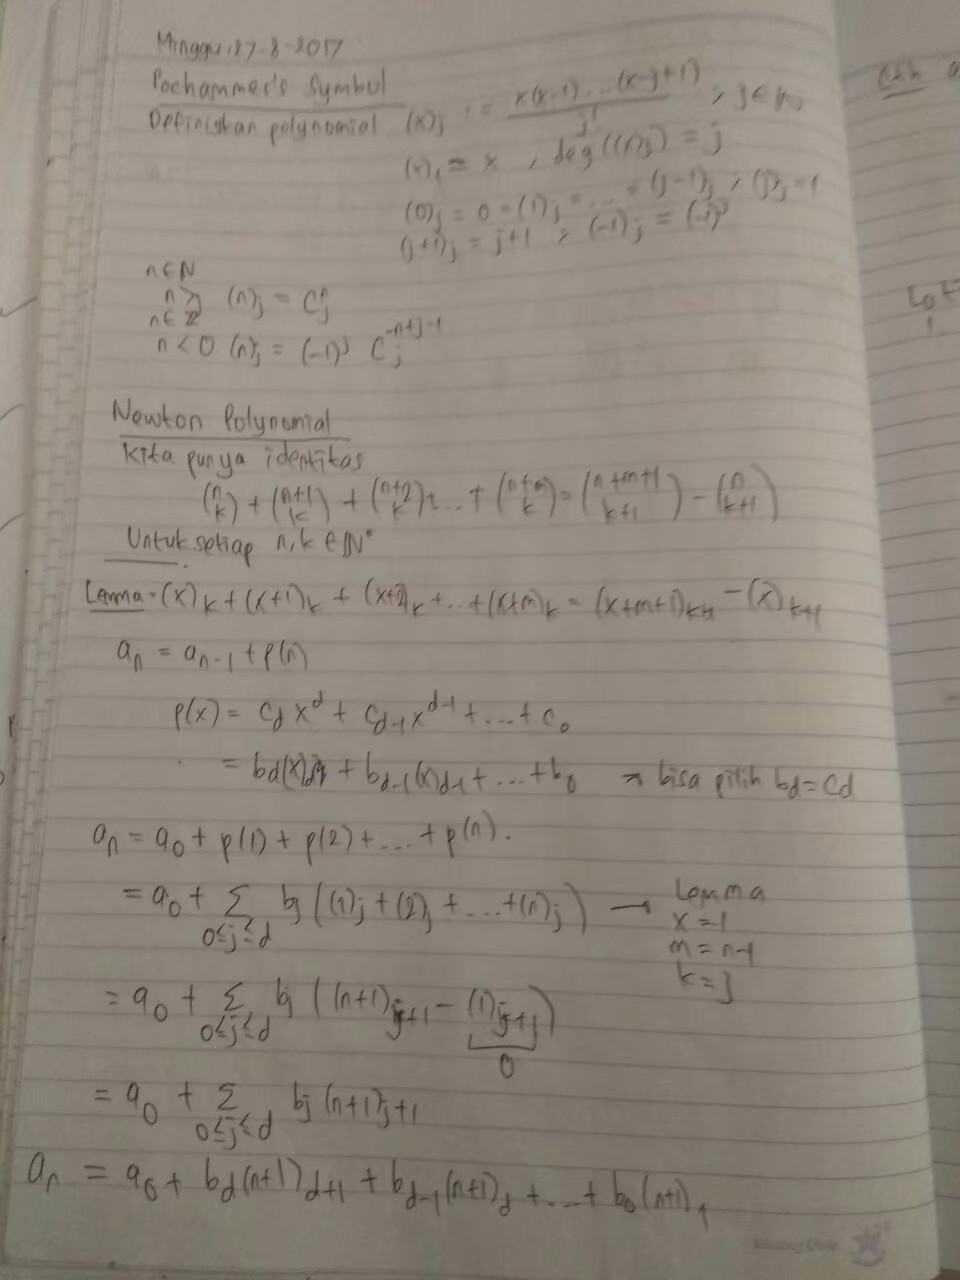 Minggu, 27-8-2017
Pochammer's Symbol
Definisikan polynomial (x)j := x(x-1)...(x-j+1) / j! , j ∈ N,
(x)₁ = x , deg((x)j) = j
(0)j = 0 = (1)j = ... = (j-1)j , (j)j = 1
(j+1)j = j+1 , (-1)j = (-1)^j
n ∈ N
n ≥ (n)j = C^n_j
n ∈ Z
n < 0 (n)j = (-1)^j C^{-n+j-1}_j
Newton Polynomial
Kita punya identitas
(n k) + (n+1 k) + (n+2 k) + ... + (n+m k) = (n+m+1 k+1) - (n k+1)
Untuk setiap n, k ∈ N°
Lemma = (x)k + (x+1)k + (x+2)k + ... + (x+m)k = (x+m+1)k+1 - (x)k+1
an = an-1 + p(n)
p(x) = cd x^d + cd-1 x^{d-1} + ... + c0
= bd(x)d + bd-1(x)d-1 + ... + b0 → bisa pilih bd = cd
an = a0 + p(1) + p(2) + ... + p(n).
= a0 + Σ 0≤j≤d bj ((1)j + (2)j + ... + (n)j) → Lemma
x = 1
m = n-1
k = j
= a0 + Σ 0≤j≤d bj ((n+1)j+1 - (1)j+1)
0
= a0 + Σ 0≤j≤d bj (n+1)j+1
an = a0 + bd(n+1)d+1 + bd-1(n+1)d + ... + b0(n+1)1